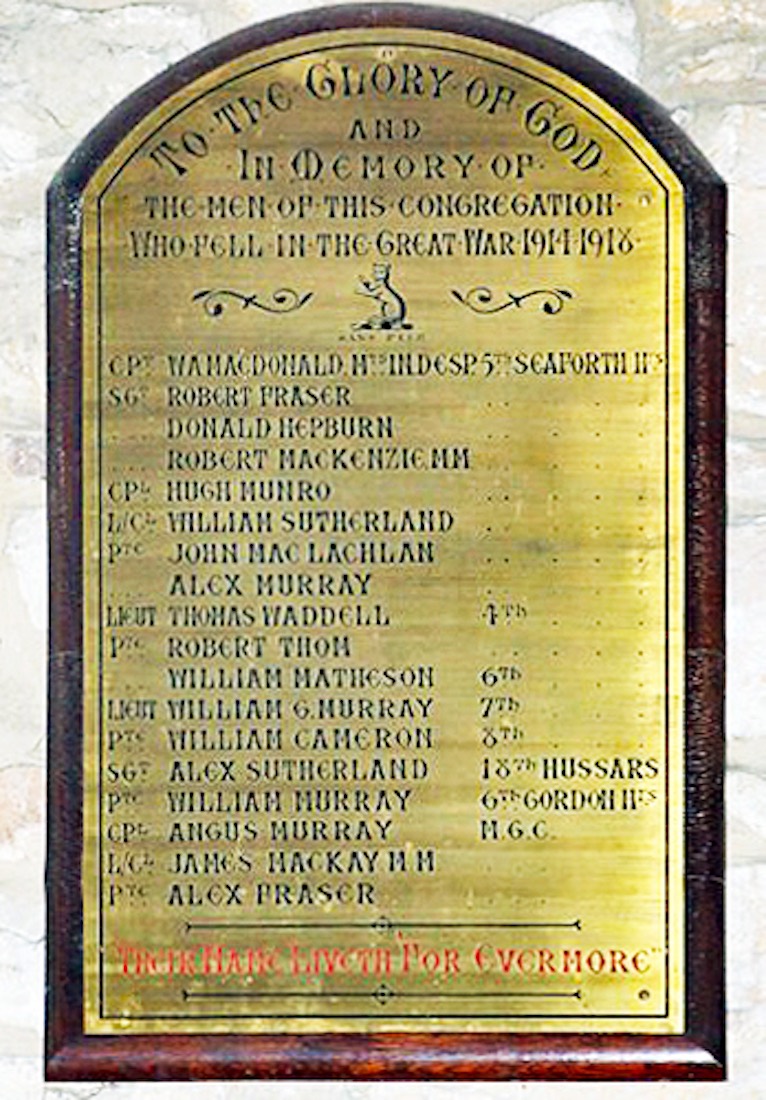 TO·THE·GLORY·OF·GOD
AND
·IN·MEMORY·OF·
·THE·MEN·OF·THIS·CONGREGATION·
·WHO·FELL·IN·THE·GREAT·WAR·1914-1918·
SANS PEUR
CPT WA MACDONALD. MTD IN DESP. 5TH SEAFORTH HRS
SGT ROBERT FRASER . . . .
.... DONALD HEPBURN . . . .
.... ROBERT MACKENZIE. MM . . . .
CPL HUGH MUNRO . . . .
L/CL WILLIAM SUTHERLAND . . . .
PTE JOHN MAC LACHLAN . . . .
.... ALEX MURRAY . . . .
LIEUT THOMAS WADDELL 4TH . . .
PTE ROBERT THOM . . . .
.... WILLIAM MATHESON 6TH . . .
LIEUT WILLIAM G. MURRAY 7TH . . .
PTE WILLIAM CAMERON 8TH . . .
SGT ALEX SUTHERLAND 18TH HUSSARS
PTE WILLIAM MURRAY 6TH GORDON HRS
CPL ANGUS MURRAY M.G.C.
L/CL JAMES MACKAY M M . . .
PTE ALEX FRASER . . .
"THEIR NAME LIVETH FOR EVERMORE"